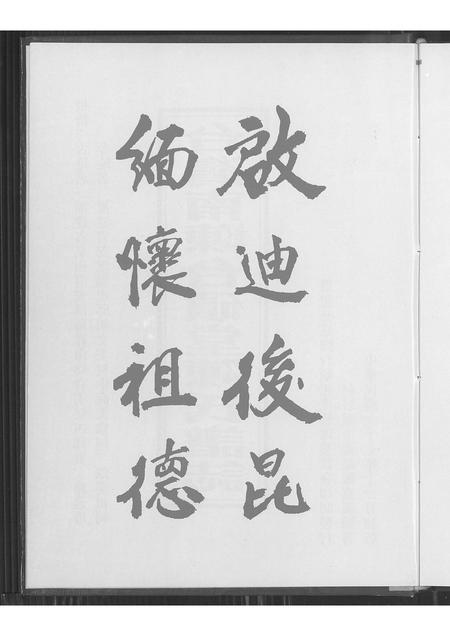 啟迪後昆
緬懷祖德